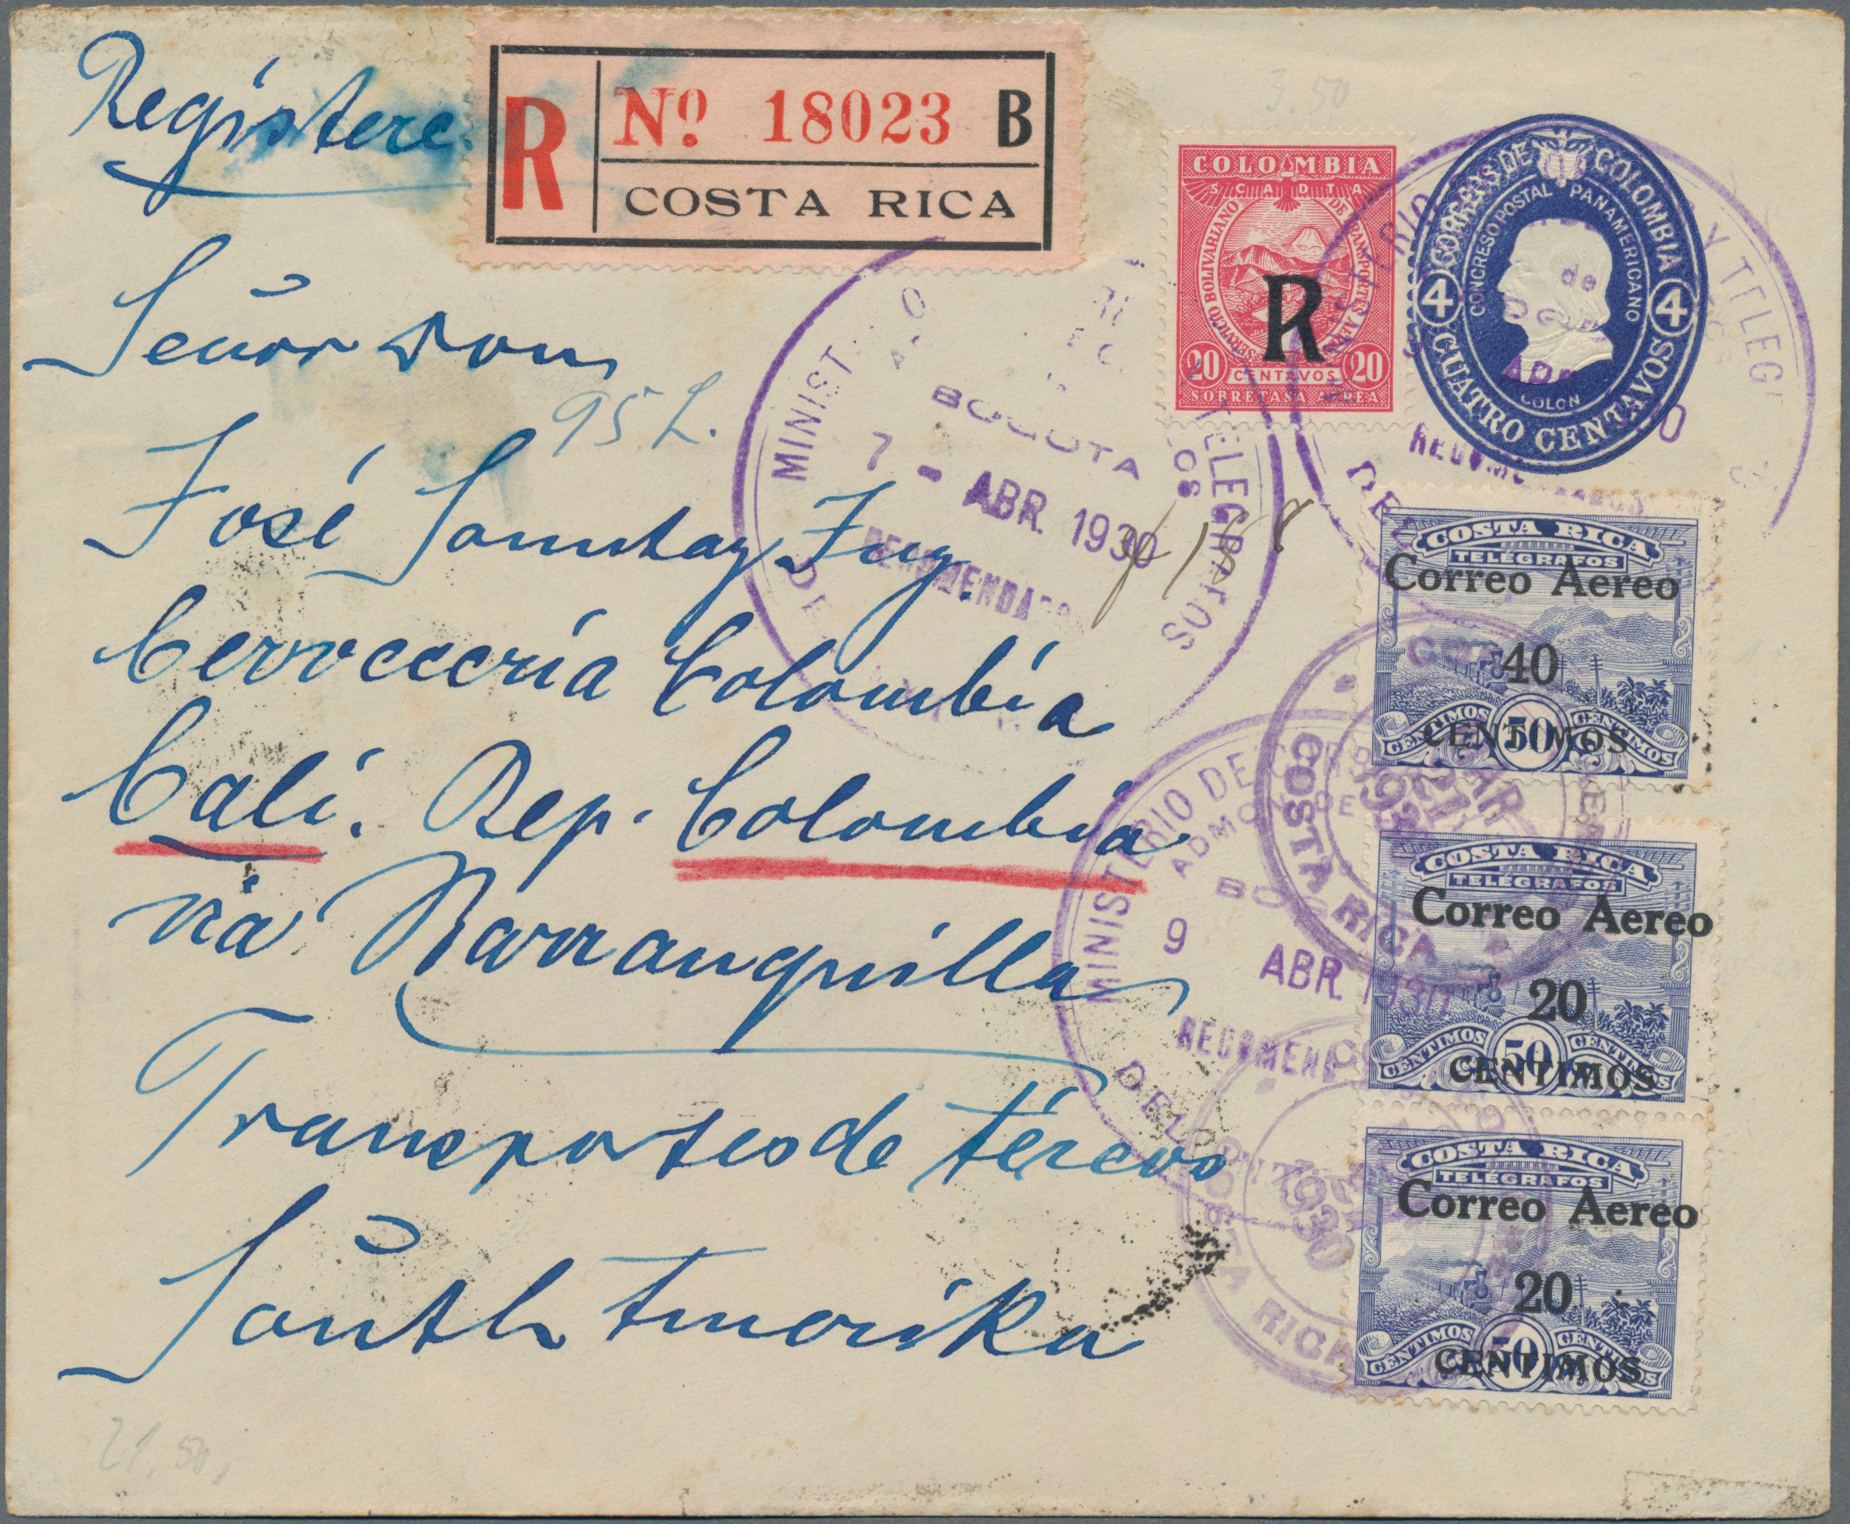 Registere
R Nº 18023 B
COSTA RICA
3.50
COLOMBIA
SCADTA
SERVICIO BOLIVARIANO DE TRANSPORTES AEREOS
R
20 CENTAVOS 20
SOBRETASA AEREA
CORREOS DE COLOMBIA
CONGRESO POSTAL PANAMERICANO
4 4
COLON
CUATRO CENTAVOS
de
RECOMENDADOS
Señor don
95 L.
MINIST
BOGOTA
7 - ABR. 1930
RECOMENDADOS
TELEGRAFOS
158
José Sonntag Ing.
Cervecería Colombia
Cali. Rep. Colombia
via Barranquilla
Transportes de Aéreos
South Amerika
COSTA RICA
TELÉGRAFOS
Correo Aereo
40
CENTIMOS 50 CENTIMOS
CENTIMOS
MINISTERIO DE CORR
ADMON DE
BOG
9 ABR. 1930
RECOMEND
COSTA RICA
MAR
COSTA RICA
TELÉGRAFOS
Correo Aereo
20
CENTIMOS 50 CENTIMOS
CENTIMOS
COSTA RICA
TELÉGRAFOS
Correo Aereo
20
CENTIMOS 50 CENTIMOS
CENTIMOS
1930
TA RICA
21.50